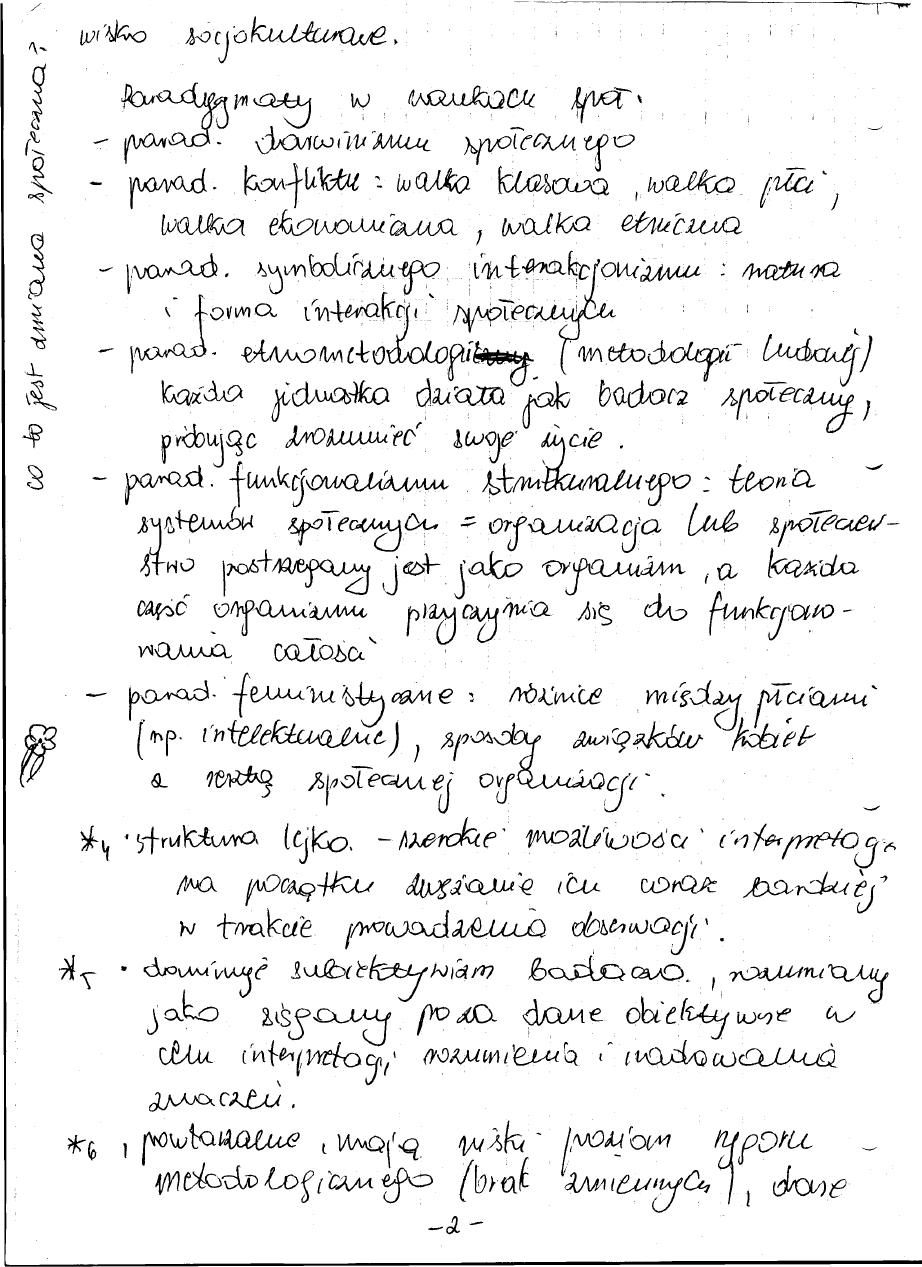 wisko socjokulturowe.
co to jest zmiana społeczna?
Paradygmaty w naukach społ.
- parad. darwinizmu społecznego
- parad. konfliktu : walka klasowa, walka płci,
walka ekonomiczna, walka etniczna
- parad. symbolicznego interakcjonizmu : natura
i forma interakcji społecznych
- parad. etnometodologii (metodologii ludowej)
każda jednostka działa jak badacz społeczny,
próbując zrozumieć swoje życie.
- parad. funkcjonalizmu strukturalnego : teoria
systemów społecznych = organizacja lub społeczeń-
stwo postrzegany jest jako organizm, a każda
część organizmu przyczynia się do funkcjono-
wania całości
- parad. feministyczne : różnice między płciami
(np. intelektualne), sposoby związków kobiet
z resztą społecznej organizacji.
*4 · struktura lejka - szerokie możliwości interpretacji
na początku zwężanie ich coraz bardziej
w trakcie prowadzenia obserwacji.
*5 · dominuje subiektywizm badacza, rozumiany
jako sięgany poza dane obiektywne w
celu interpretacji, rozumienia i nadawania
znaczeń.
*6 , powtarzalne, mają niski poziom rygoru
metodologicznego (brak zmiennych), dane
- 2 -